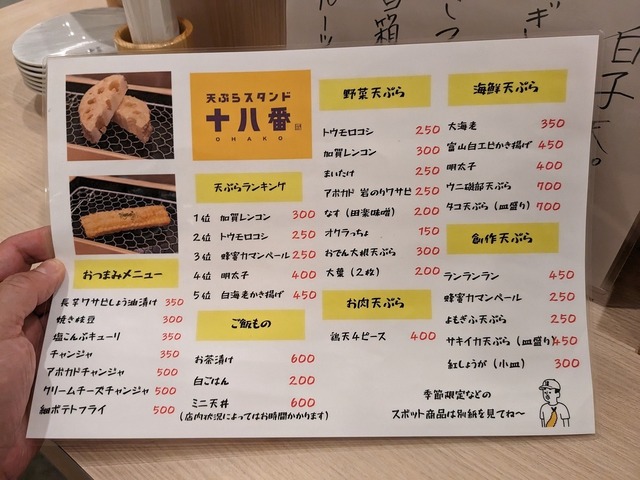 天ぷらスタンド
十八番
OHAKO
天ぷらランキング
1位 加賀レンコン 300
2位 トウモロコシ 250
3位 蜂蜜カマンベール 250
4位 明太子 400
5位 白海老かき揚げ 450
おつまみメニュー
長芋ワサビしょう油漬け 350
焼き枝豆 300
塩こんぶキューリ 350
チャンジャ 350
アボカドチャンジャ 500
クリームチーズチャンジャ 500
細ポテトフライ 500
ご飯もの
お茶漬け 600
白ごはん 200
ミニ天丼 600
(店内状況によってはお時間かかります)
野菜天ぷら
トウモロコシ 250
加賀レンコン 300
まいたけ 250
アボカド 岩のりワサビ 250
なす(田楽味噌) 200
オクラちょ 150
おでん大根天ぷら 300
大葉(2枚) 200
お肉天ぷら
鶏天4ピース 400
海鮮天ぷら
大海老 350
富山白エビかき揚げ 450
明太子 400
ウニ磯部天ぷら 700
タコ天ぷら(皿盛り) 700
創作天ぷら
ランランラン 450
蜂蜜カマンベール 250
よもぎふ天ぷら 250
サキイカ天ぷら(皿盛り) 450
紅しょうが(小皿) 300
季節限定などの
スポット商品は別紙を見てね〜
白子天。